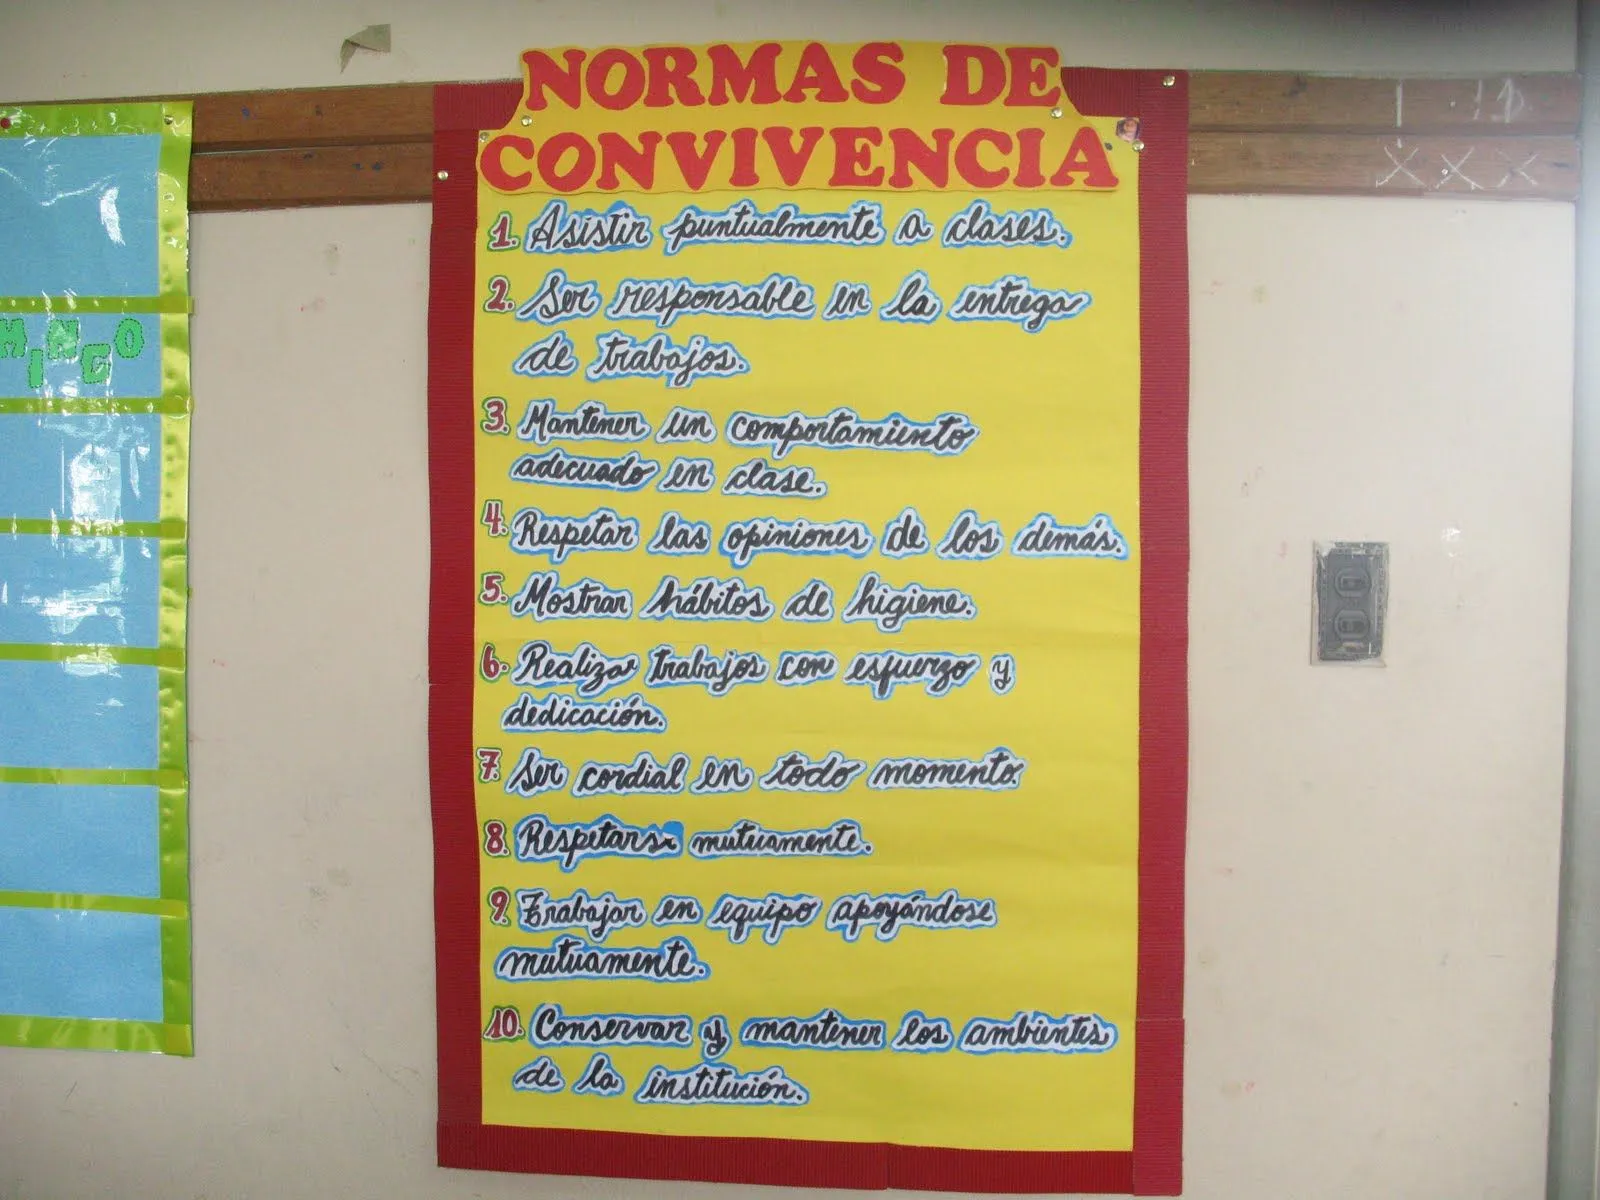 NORMAS DE
CONVIVENCIA
1. Asistir puntualmente a clases.
2. Ser responsable en la entrega
de trabajos.
3. Mantener un comportamiento
adecuado en clase.
4. Respetar las opiniones de los demás.
5. Mostrar hábitos de higiene.
6. Realizar trabajos con esfuerzo y
dedicación.
7. Ser cordial en todo momento.
8. Respetarse mutuamente.
9. Trabajar en equipo apoyándose
mutuamente.
10. Conservar y mantener los ambientes
de la institución.
MINGO
XXX